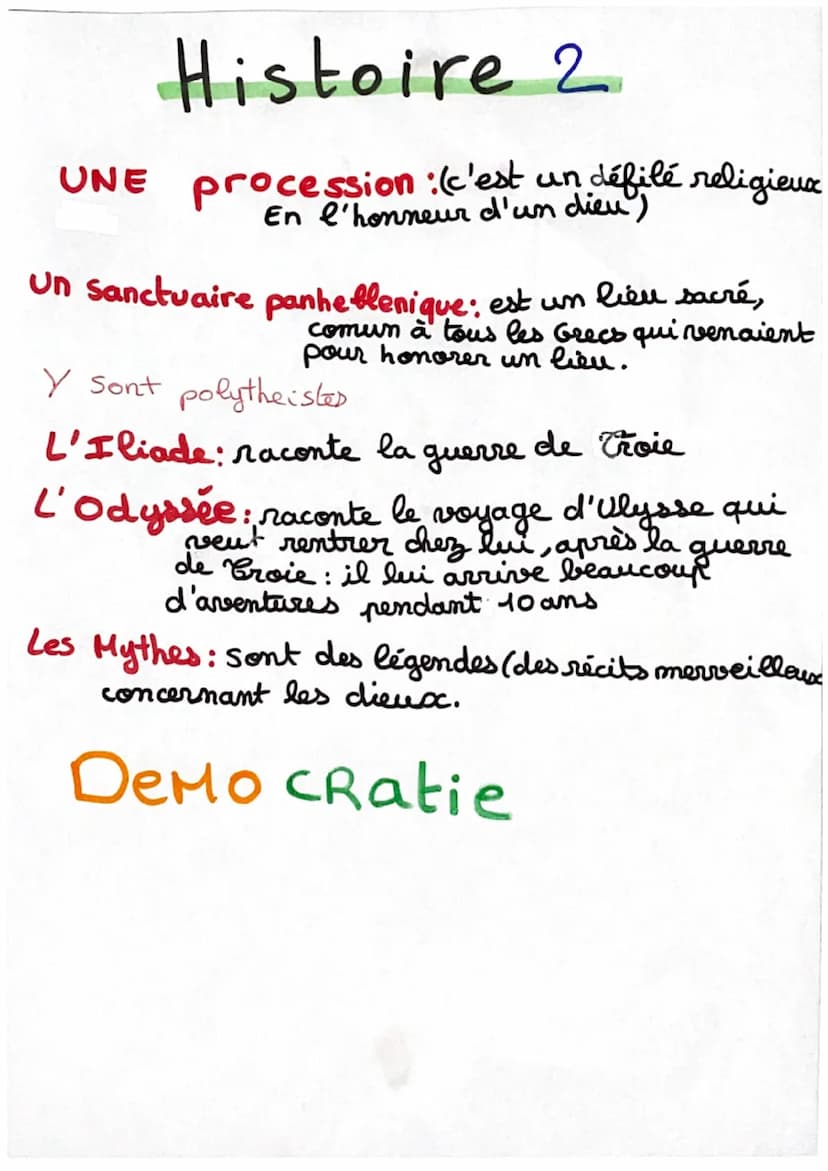 Histoire 2
UNE procession : (c'est un défilé religieux
En l'honneur d'un dieu)
Un sanctuaire panhellenique : est un lieu sacré,
comun à tous les Grecs qui venaient
pour honorer un lieu.
Y sont polytheistes
L'Iliade : raconte la guerre de Troie
L'Odyssée : raconte le voyage d'Ulysse qui
veut rentrer chez lui, après la guerre
de Troie : il lui arrive beaucoup
d'aventures pendant 10 ans
Les Mythes : sont des légendes (des récits merveilleux
concernant les dieux.
DeMo cRatie